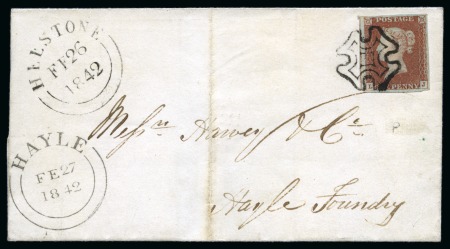 HELSTONE
FE 26
1842
POSTAGE
PENNY
HAYLE
FE 27
1842
Messrs Harvey & Co
Hayle Foundry